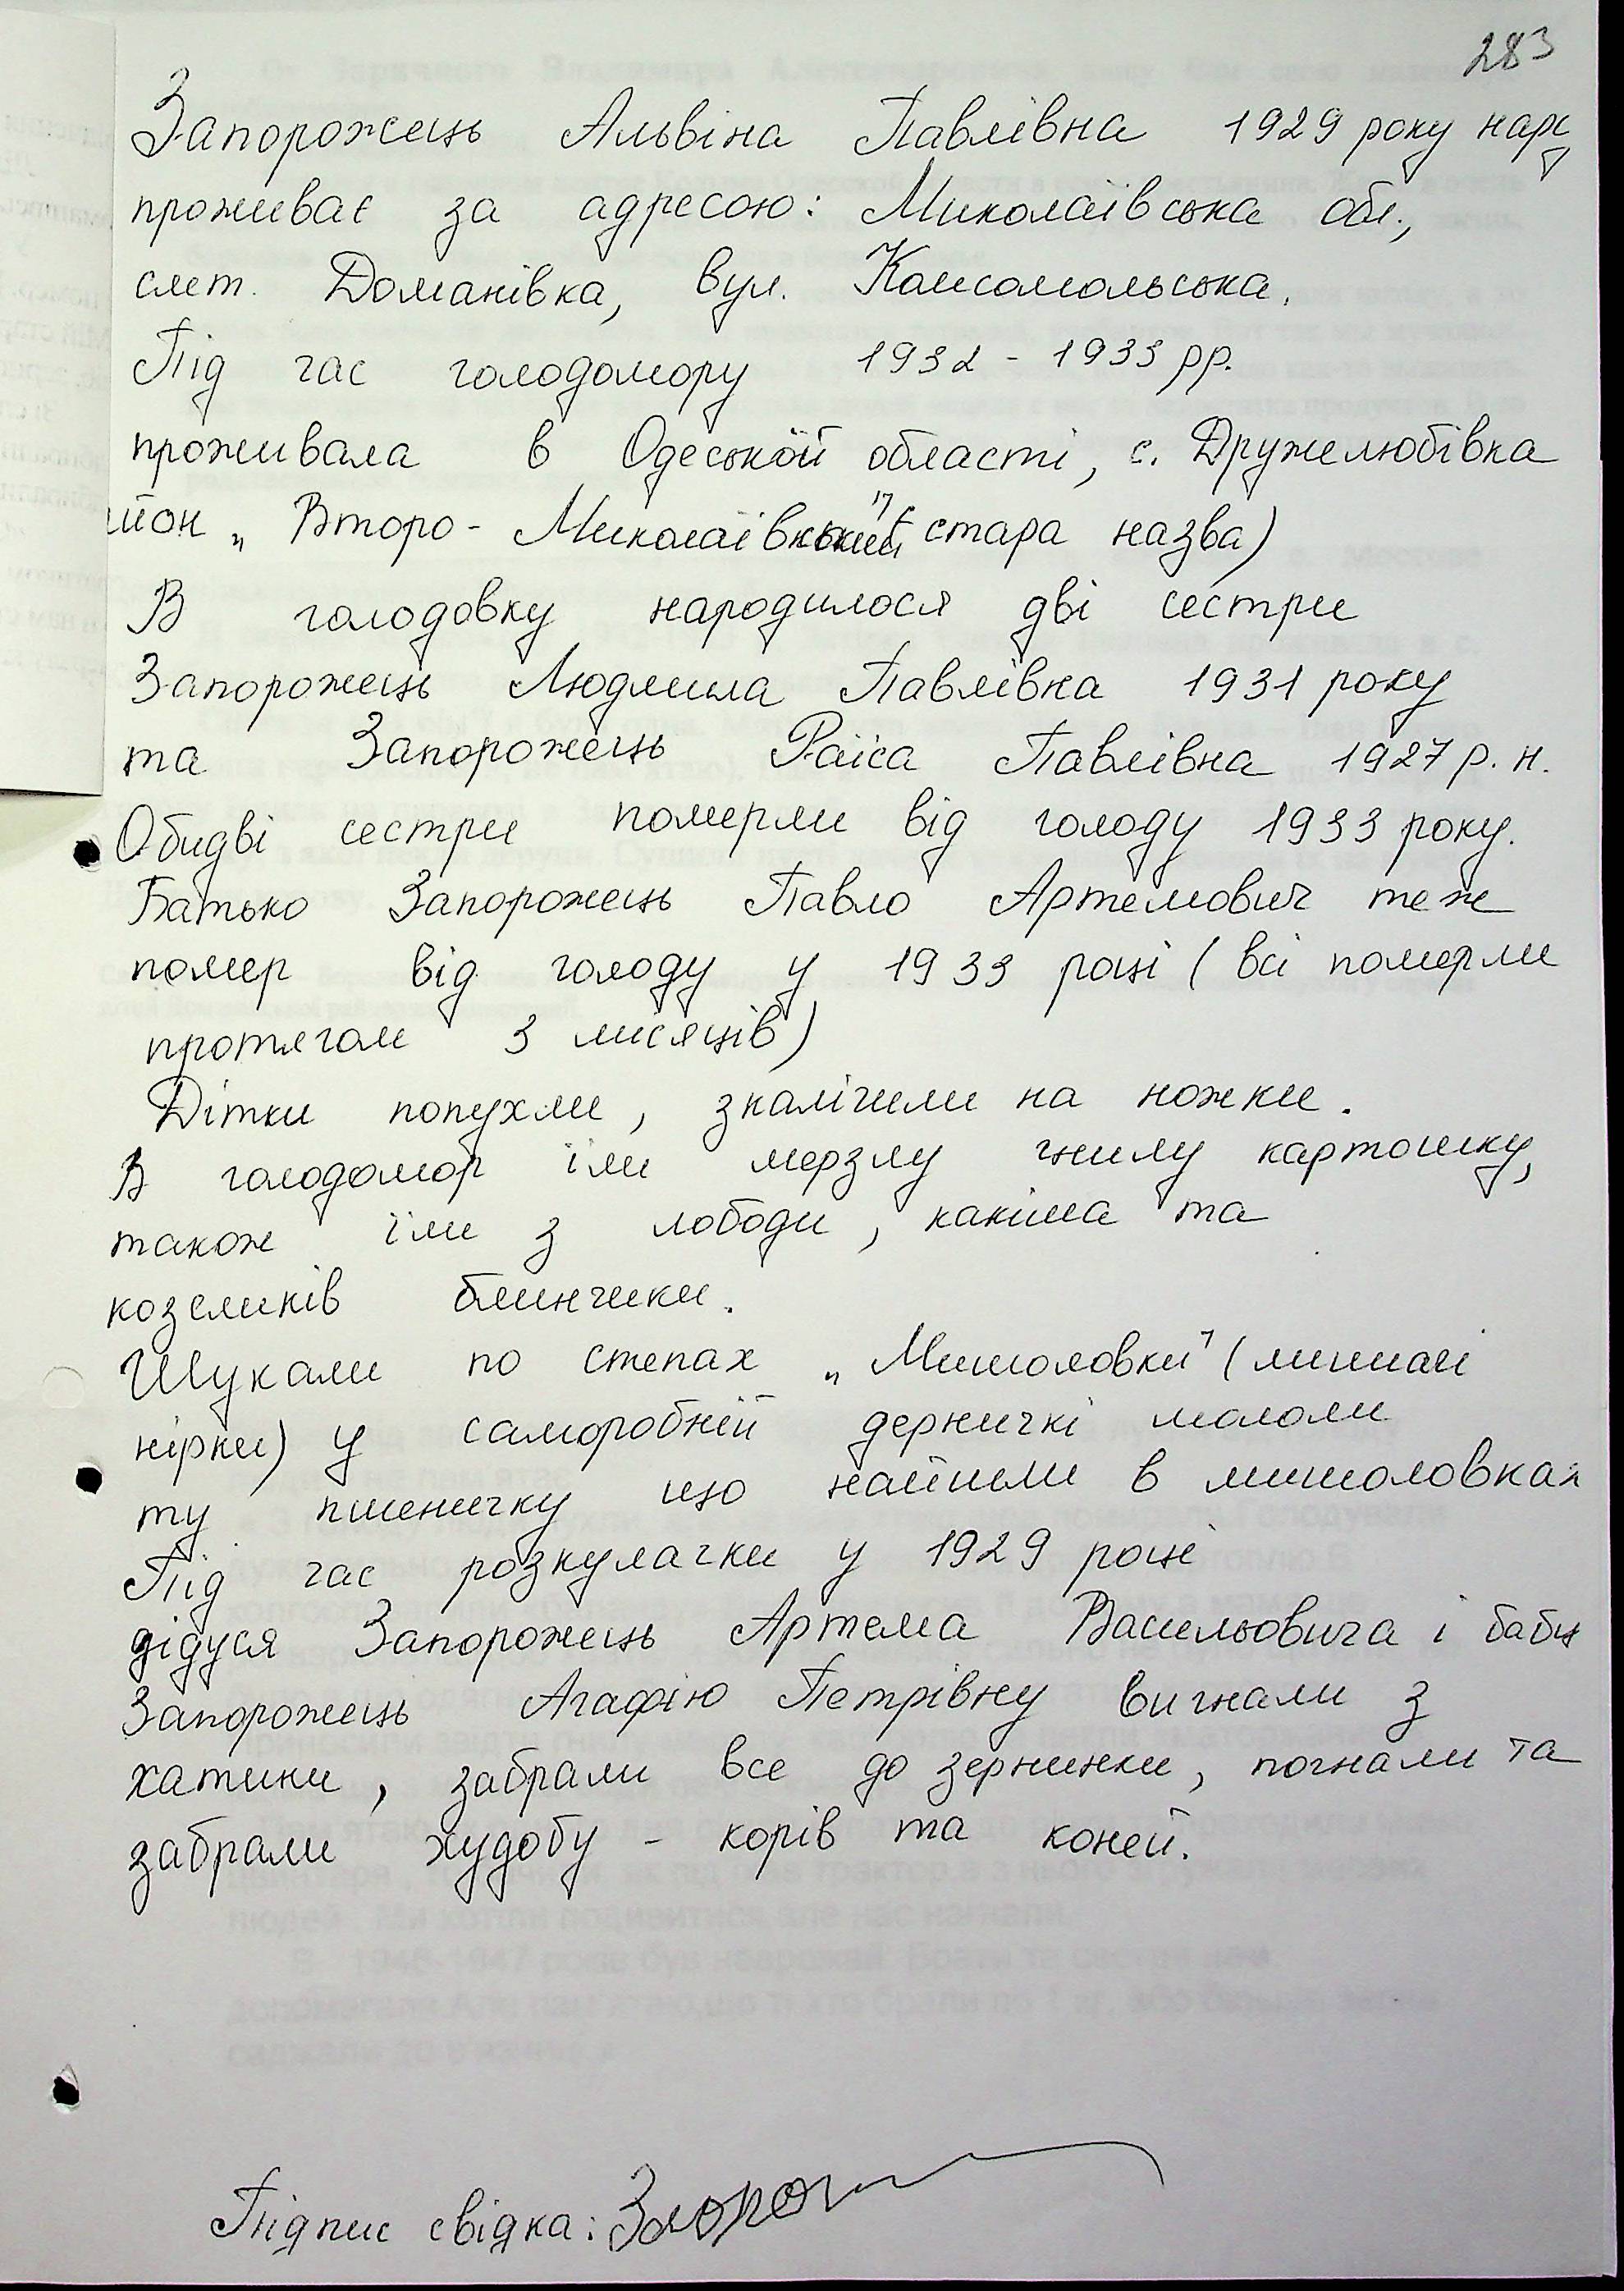 283
Запорожець Альвіна Павлівна 1929 року нар
проживає за адресою: Миколаївська обл.,
смт. Доманівка, вул. Комсомольська.
Під час голодомору 1932 - 1933 рр.
проживала в Одеській області, с. Дружелюбівка
йон „Второ-Миколаївський" (стара назва)
В голодовку народилося дві сестри
Запорожець Людмила Павлівна 1931 року
та Запорожець Раїса Павлівна 1927 р. н.
Обидві сестри померли від голоду 1933 року.
Батько Запорожець Павло Артемович теж
помер від голоду у 1933 році (всі померли
протягом 3 місяців)
Дітки попухли, зкалічили на ножки.
В голодомор їли мерзлу гнилу картошку,
також їли з лободи, какиша та
козеликів блинчики.
Шукали по степах „Мишоловки" (мишачі
нірки) у саморобній дерничкі мололи
ту пшеничку що найшли в мишоловках
Під час розкулачки у 1929 році
дідуся Запорожець Артема Васильовича і бабу
Запорожець Агафію Петрівну вигнали з
хатини, забрали все до зернинки, погнали та
забрали худобу - корів та коней.
Підпис свідка: